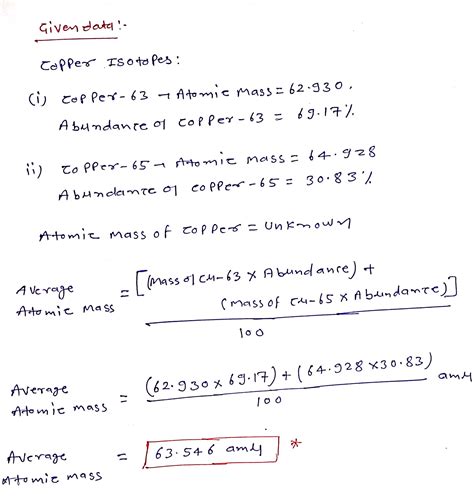 Given data:-
Copper Isotopes:
(i) Copper-63 → Atomic Mass = 62.930.
Abundance of Copper-63 = 69.17%
ii) Copper-65 → Atomic Mass = 64.928
Abundance of Copper-65 = 30.83%
Atomic Mass of Copper = Unknown
Average Atomic Mass = [(Mass of Cu-63 × Abundance) +
(Mass of Cu-65 × Abundance)]
100
Average Atomic mass = (62.930 × 69.17) + (64.928 × 30.83) amu
100
Average Atomic mass = 63.546 amu *